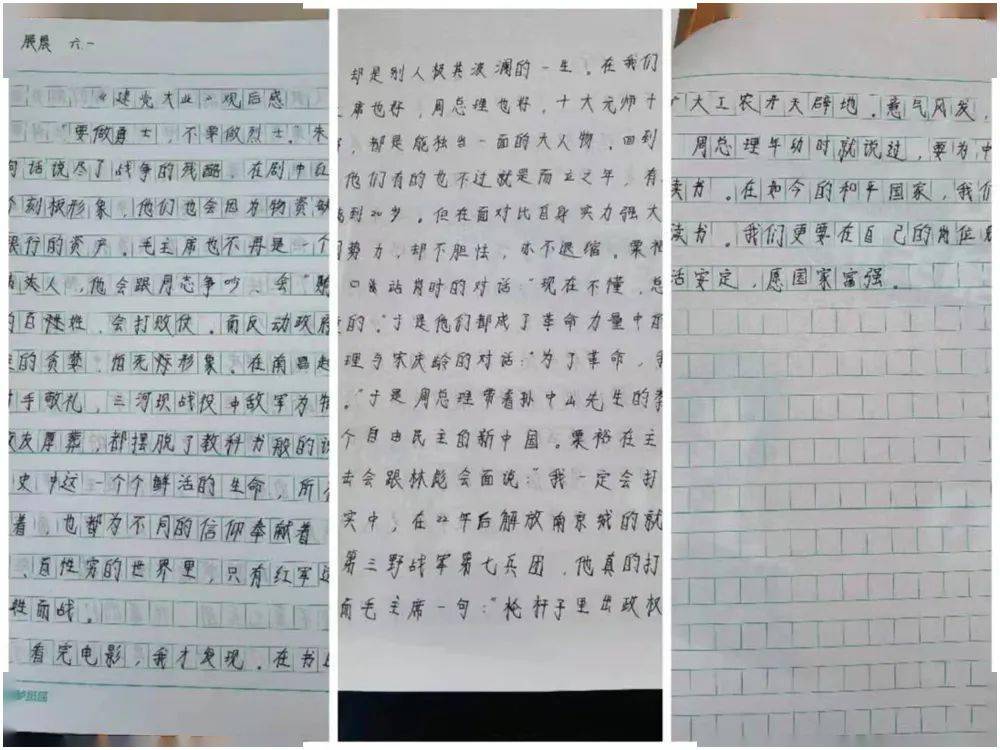 展展 六一
《建党大业》观后感
"要做勇士,不要做烈士。朱
句话说尽了战争的残酷。在剧中
个刻板形象,他们也会因为物资缺
银行的资产。毛主席也不再是一个
英人,他会跟同志争吵,会"
的百性性,会打败仗。而反动政府
的贪婪、怕死 形象。在南昌起
对手敬礼,三河坝战役中敌军为牺
友厚葬,都摆脱了教科书般的
史中这一个个鲜活的生命,所
着,也都为不同的信仰奉献着
、百性穷的世界里,只有红军
性而战。
看完电影,我才发现。在书
却是别人极其波澜的一生。在我们
席也好,周总理也好,十大元帅十
,都是能独当一面的大人物。回到
他们有的也不过就是而立之年,有
到20岁。但在面对比自身实力强大
势力,却不胆怯,亦不退缩。粟裕
口 站岗时的对话:"现在不懂,总
的。"于是他们都成了革命力量中
理与宋庆龄的对话:"为了革命,
。"于是周总理带着孙中山先生的
个自由民主的新中国。粟裕在主
去会跟林彪会面说:"我一定会打
实中,在22年后解放南京城的就
第三野战军第七兵团,他真的打
而毛主席一句:"枪杆子里出政权
大工农开天辟地。意气风发,
周总理年幼时就说过,要为中
读书。在如今的和平国家,我们
读书。我们更要在自己的岗位
活安定,愿国家富强。